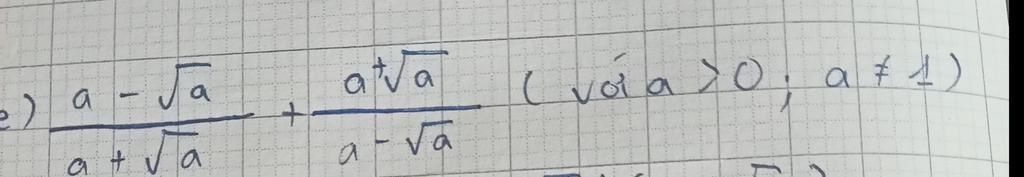 e) \frac{a - \sqrt{a}}{a + \sqrt{a}} + \frac{a + \sqrt{a}}{a - \sqrt{a}} ( với a > 0 ; a ≠ 1 )